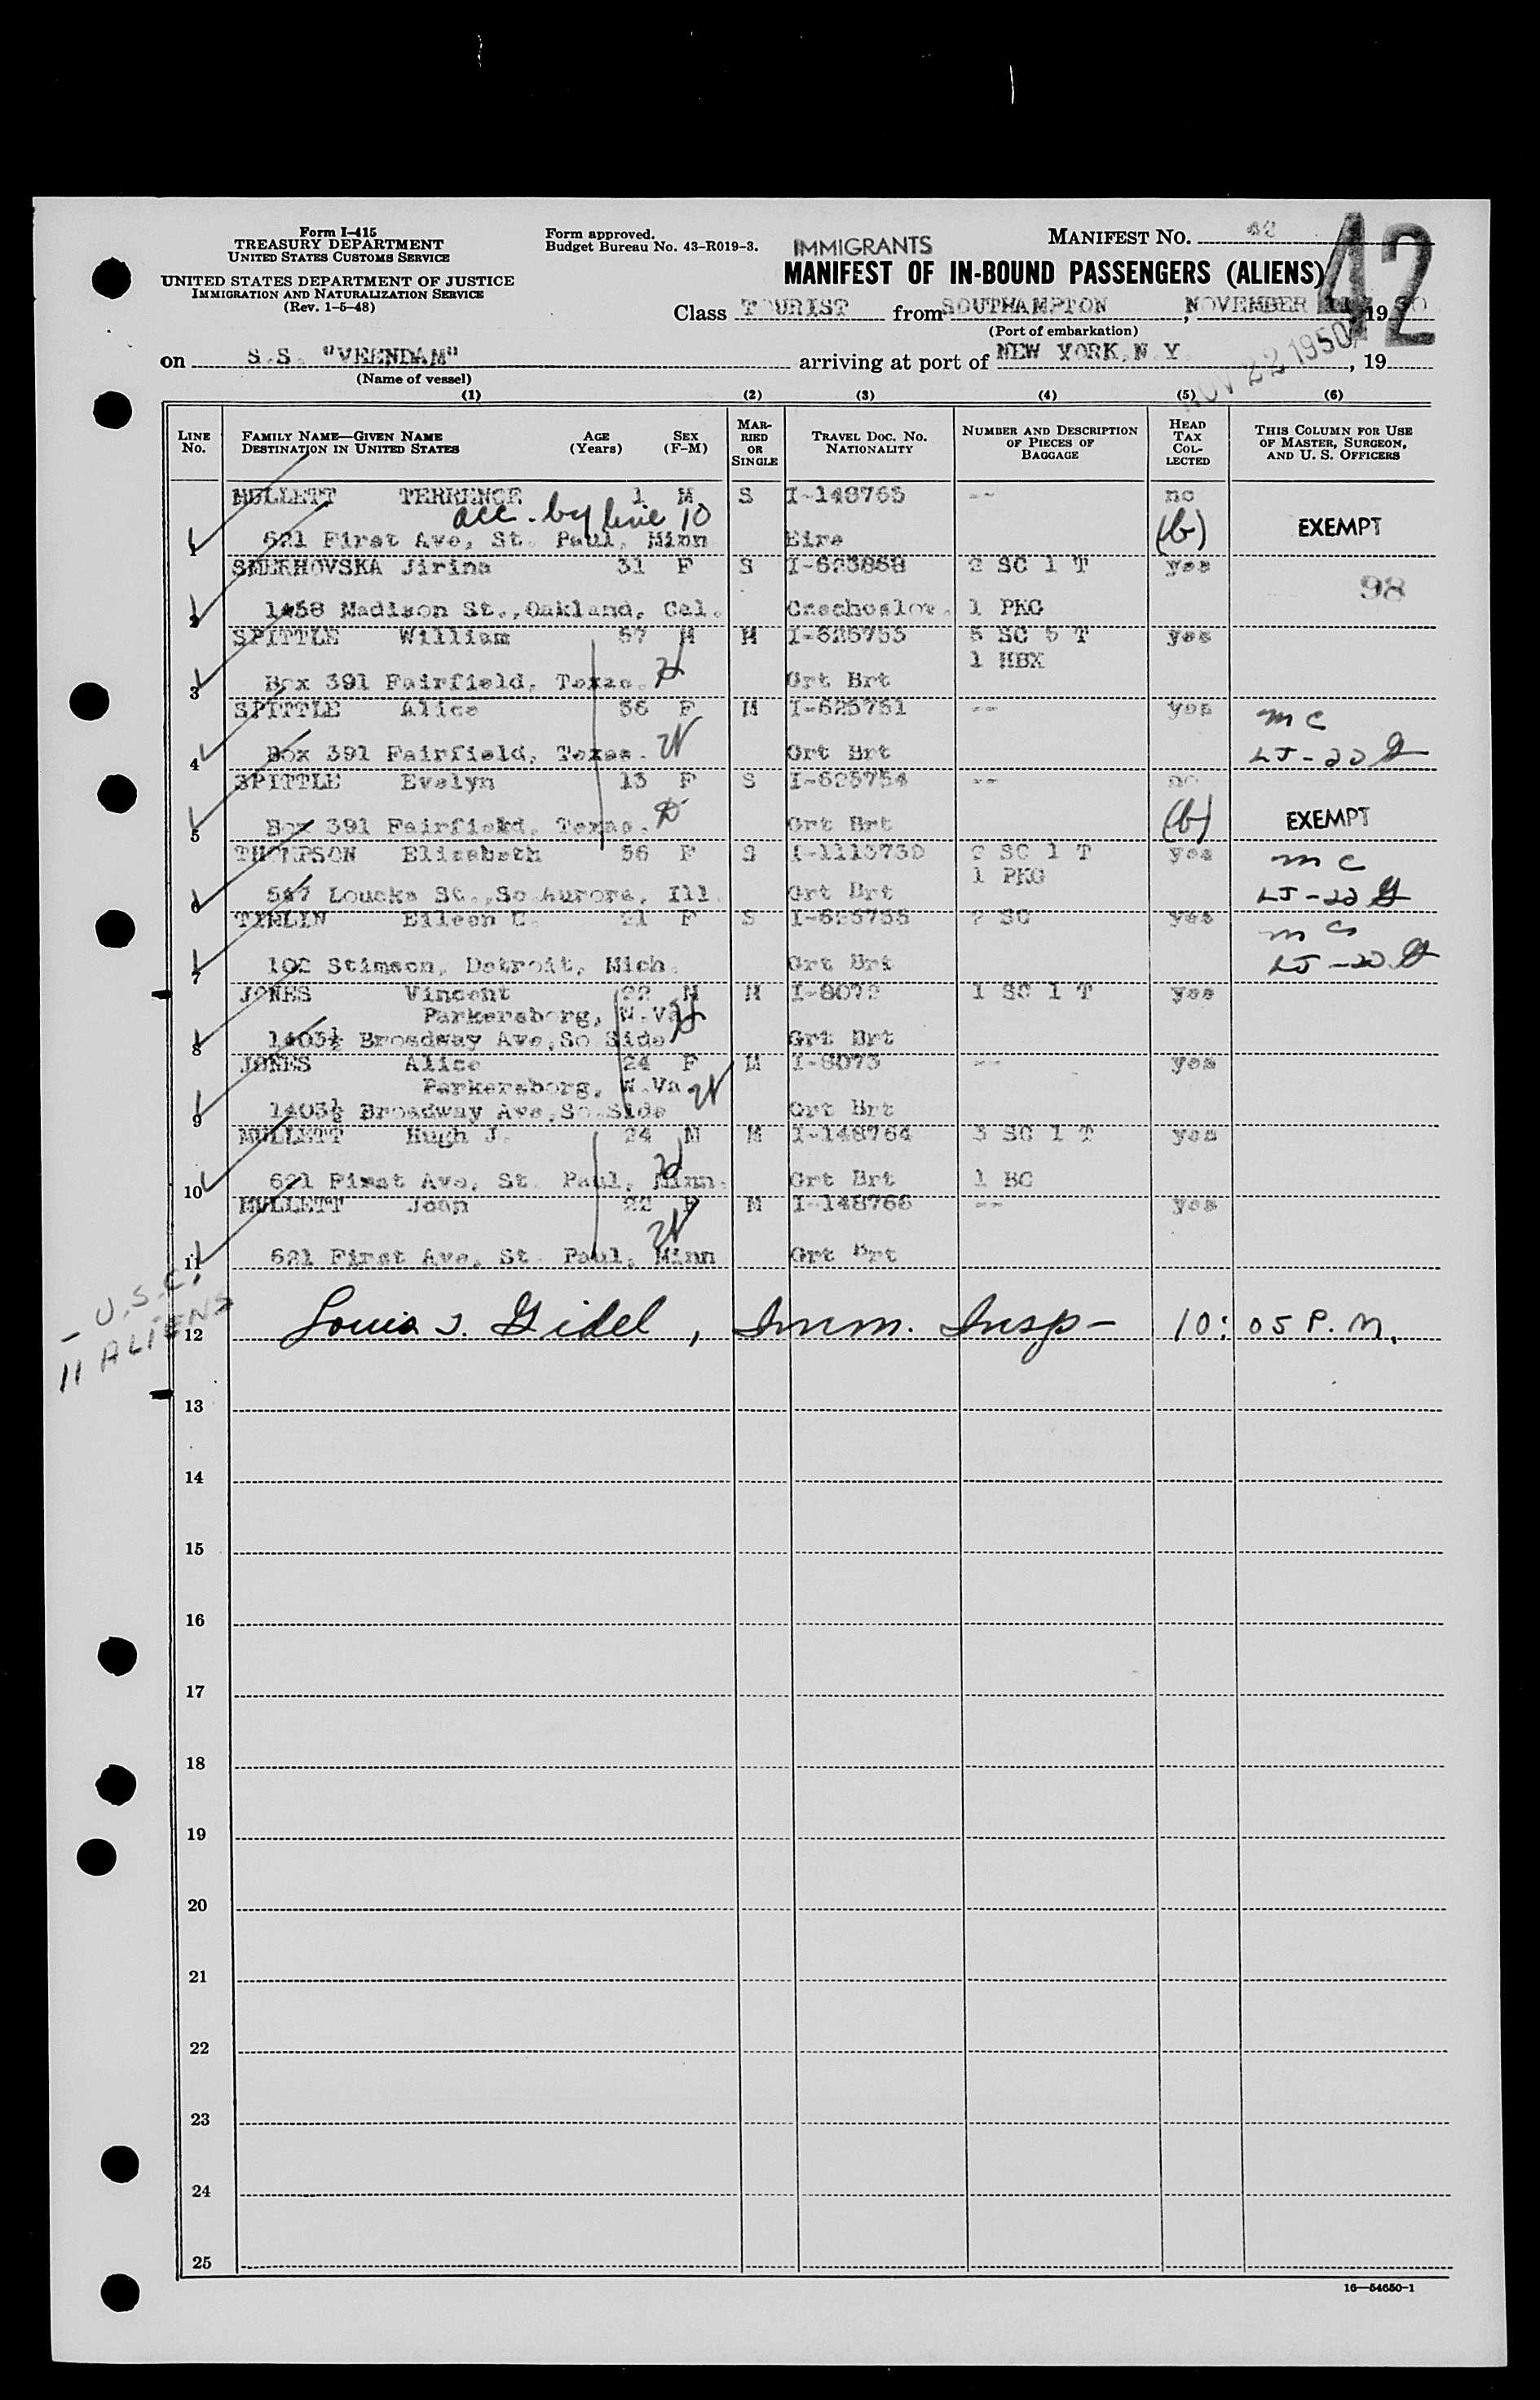 Form I-415
TREASURY DEPARTMENT
UNITED STATES CUSTOMS SERVICE
UNITED STATES DEPARTMENT OF JUSTICE
IMMIGRATION AND NATURALIZATION SERVICE
(Rev. 1-5-48)
Form approved.
Budget Bureau No. 43-R019-3.
MANIFEST NO. 42
42
IMMIGRANTS
MANIFEST OF IN-BOUND PASSENGERS (ALIENS)
Class TOURIST from SOUTHAMPTON, NOVEMBER 1950
(Port of embarkation)
on S.S. "VEENDAM" arriving at port of NEW YORK, N.Y. , 19
(Name of vessel)
NOV 22 1950
(1) (2) (3) (4) (5) (6)
LINE NO.
FAMILY NAME—GIVEN NAME DESTINATION IN UNITED STATES
AGE (Years)
SEX (F-M)
MARRIED OR SINGLE
TRAVEL DOC. NO. NATIONALITY
NUMBER AND DESCRIPTION OF PIECES OF BAGGAGE
HEAD TAX COLLECTED
THIS COLUMN FOR USE OF MASTER, SURGEON, AND U. S. OFFICERS
MULLETT TERRENCE 1 M S I-148765 -- no
acc. by line 10
1 621 First Ave, St. Paul, Minn Eire (b) EXEMPT
SMERHOVSKA Jirina 31 F S I-623868 2 SC 1 T yes
98
2 1458 Madison St.,Oakland, Cal. Czechoslov. 1 PKG
SPITTLE William 57 M M I-625753 5 SC 5 T yes
1 HBX
3 Box 391 Fairfield, Texas. Grt Brt
SPITTLE Alice 56 F M I-625751 -- yes
mc
4 Box 391 Fairfield, Texas. Grt Brt LJ-22
SPITTLE Evelyn 13 F S I-625754 -- no
5 Box 391 Fairfield, Texas. Grt Brt (b) EXEMPT
THOMPSON Elizabeth 56 F S I-1113739 2 SC 1 T yes
1 PKG mc
6 547 Loucks St.,So Aurora, Ill. Grt Brt LJ-22
TIMLIN Eileen C. 21 F S I-625758 2 SC yes
mc
7 102 Stimson, Detroit, Mich. Grt Brt LJ-22
JONES Vincent 22 M M I-8072 1 SC 1 T yes
Parkersborg, W.Va
8 1403½ Broadway Ave,So Side Grt Brt
JONES Alice 24 F M I-8073 -- yes
Parkersborg, W.Va
9 1403½ Broadway Ave,So.Side Grt Brt
MULLETT Hugh J. 24 M M I-148764 3 SC 1 T yes
10 621 First Ave, St. Paul, Minn. Grt Brt 1 BC
MULLETT Joan 22 F M I-148766 -- yes
11 621 First Ave, St. Paul, Minn Grt Brt
- U.S.C.
11 ALIENS
12 Louis J. Gidel, Imm. Insp- 10:05 P.M.
13
14
15
16
17
18
19
20
21
22
23
24
25
16—54650-1